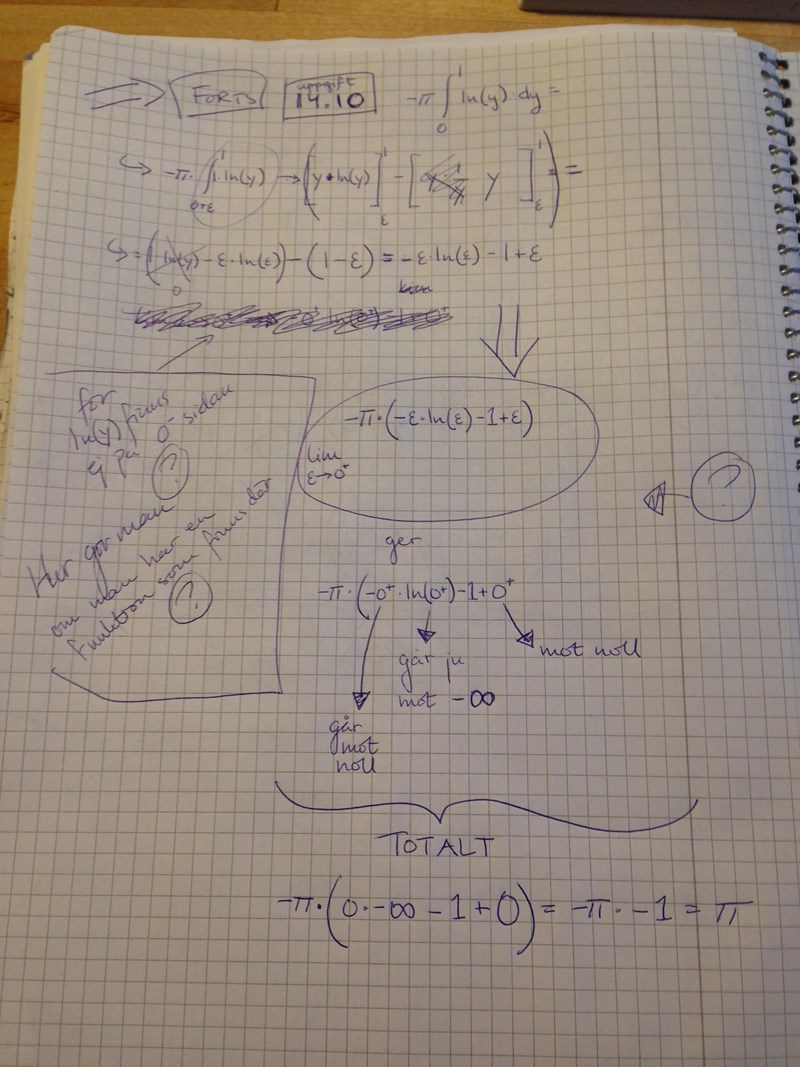 ⟹ FORTS uppgift 14.10 -π ∫₀¹ ln(y) dy =
↪ -π · ∫₀₊ε¹ 1·ln(y) → ([y·ln(y)]ε¹ - [y]ε¹) =
↪ = (1·ln(y) - ε·ln(ε)) - (1-ε) = -ε·ln(ε) - 1 + ε
0
för
ln(y) finns
ej på 0⁻ sidan
?
Hur gör man
om man har en
funktion som finns där
?
-π·(-ε·ln(ε) - 1 + ε)
lim
ε→0⁺
?
ger
-π·(-0⁺·ln(0⁺) - 1 + 0⁺)
går
mot
noll
går ju
mot -∞
mot noll
TOTALT
-π·(0·-∞ - 1 + 0) = -π · -1 = π